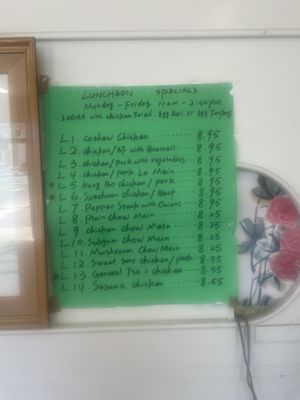 LUNCHEON SPECIALS
Monday - Friday 11am - 2:40pm
served with chicken Fried. Egg Roll or Egg
L 1. Cashew Chicken ........... 8.95
L 2. chicken/BF with Broccoli ..... 8.95
L 3. chicken/pork with vegetables. 8.95
L 4. chicken/pork Lo Main .... 8.95
* L 5. Kung Bo chicken/pork .... 8.95
* L 6. Szechuan chicken/Beef .... 8.95
L 7. Pepper Steak with Onions. 8.95
L 8. Plain Chow Main ........ 8.25
L 9. chicken Chow Main ...... 8.25
L 10. Subgum Chow Main ..... 8.25
L 11 Mushroom Chow Main .. 8.25
L 12. Sweet Sour chicken/pork. 8.55
* L 13. General Tso's chicken .... 8.55
L 14. Sesame chicken ........ 8.55